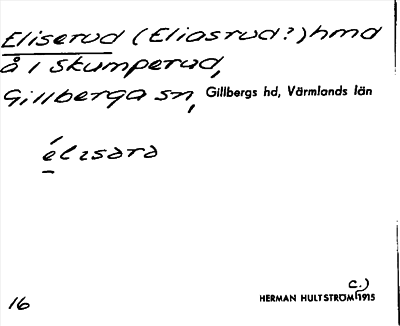 Eliserud (Eliasrud?) hmd
å i Skumperud,
Gillberga sn, Gillbergs hd, Värmlands län
élısara
16
c.)
HERMAN HULTSTRÖM 1915